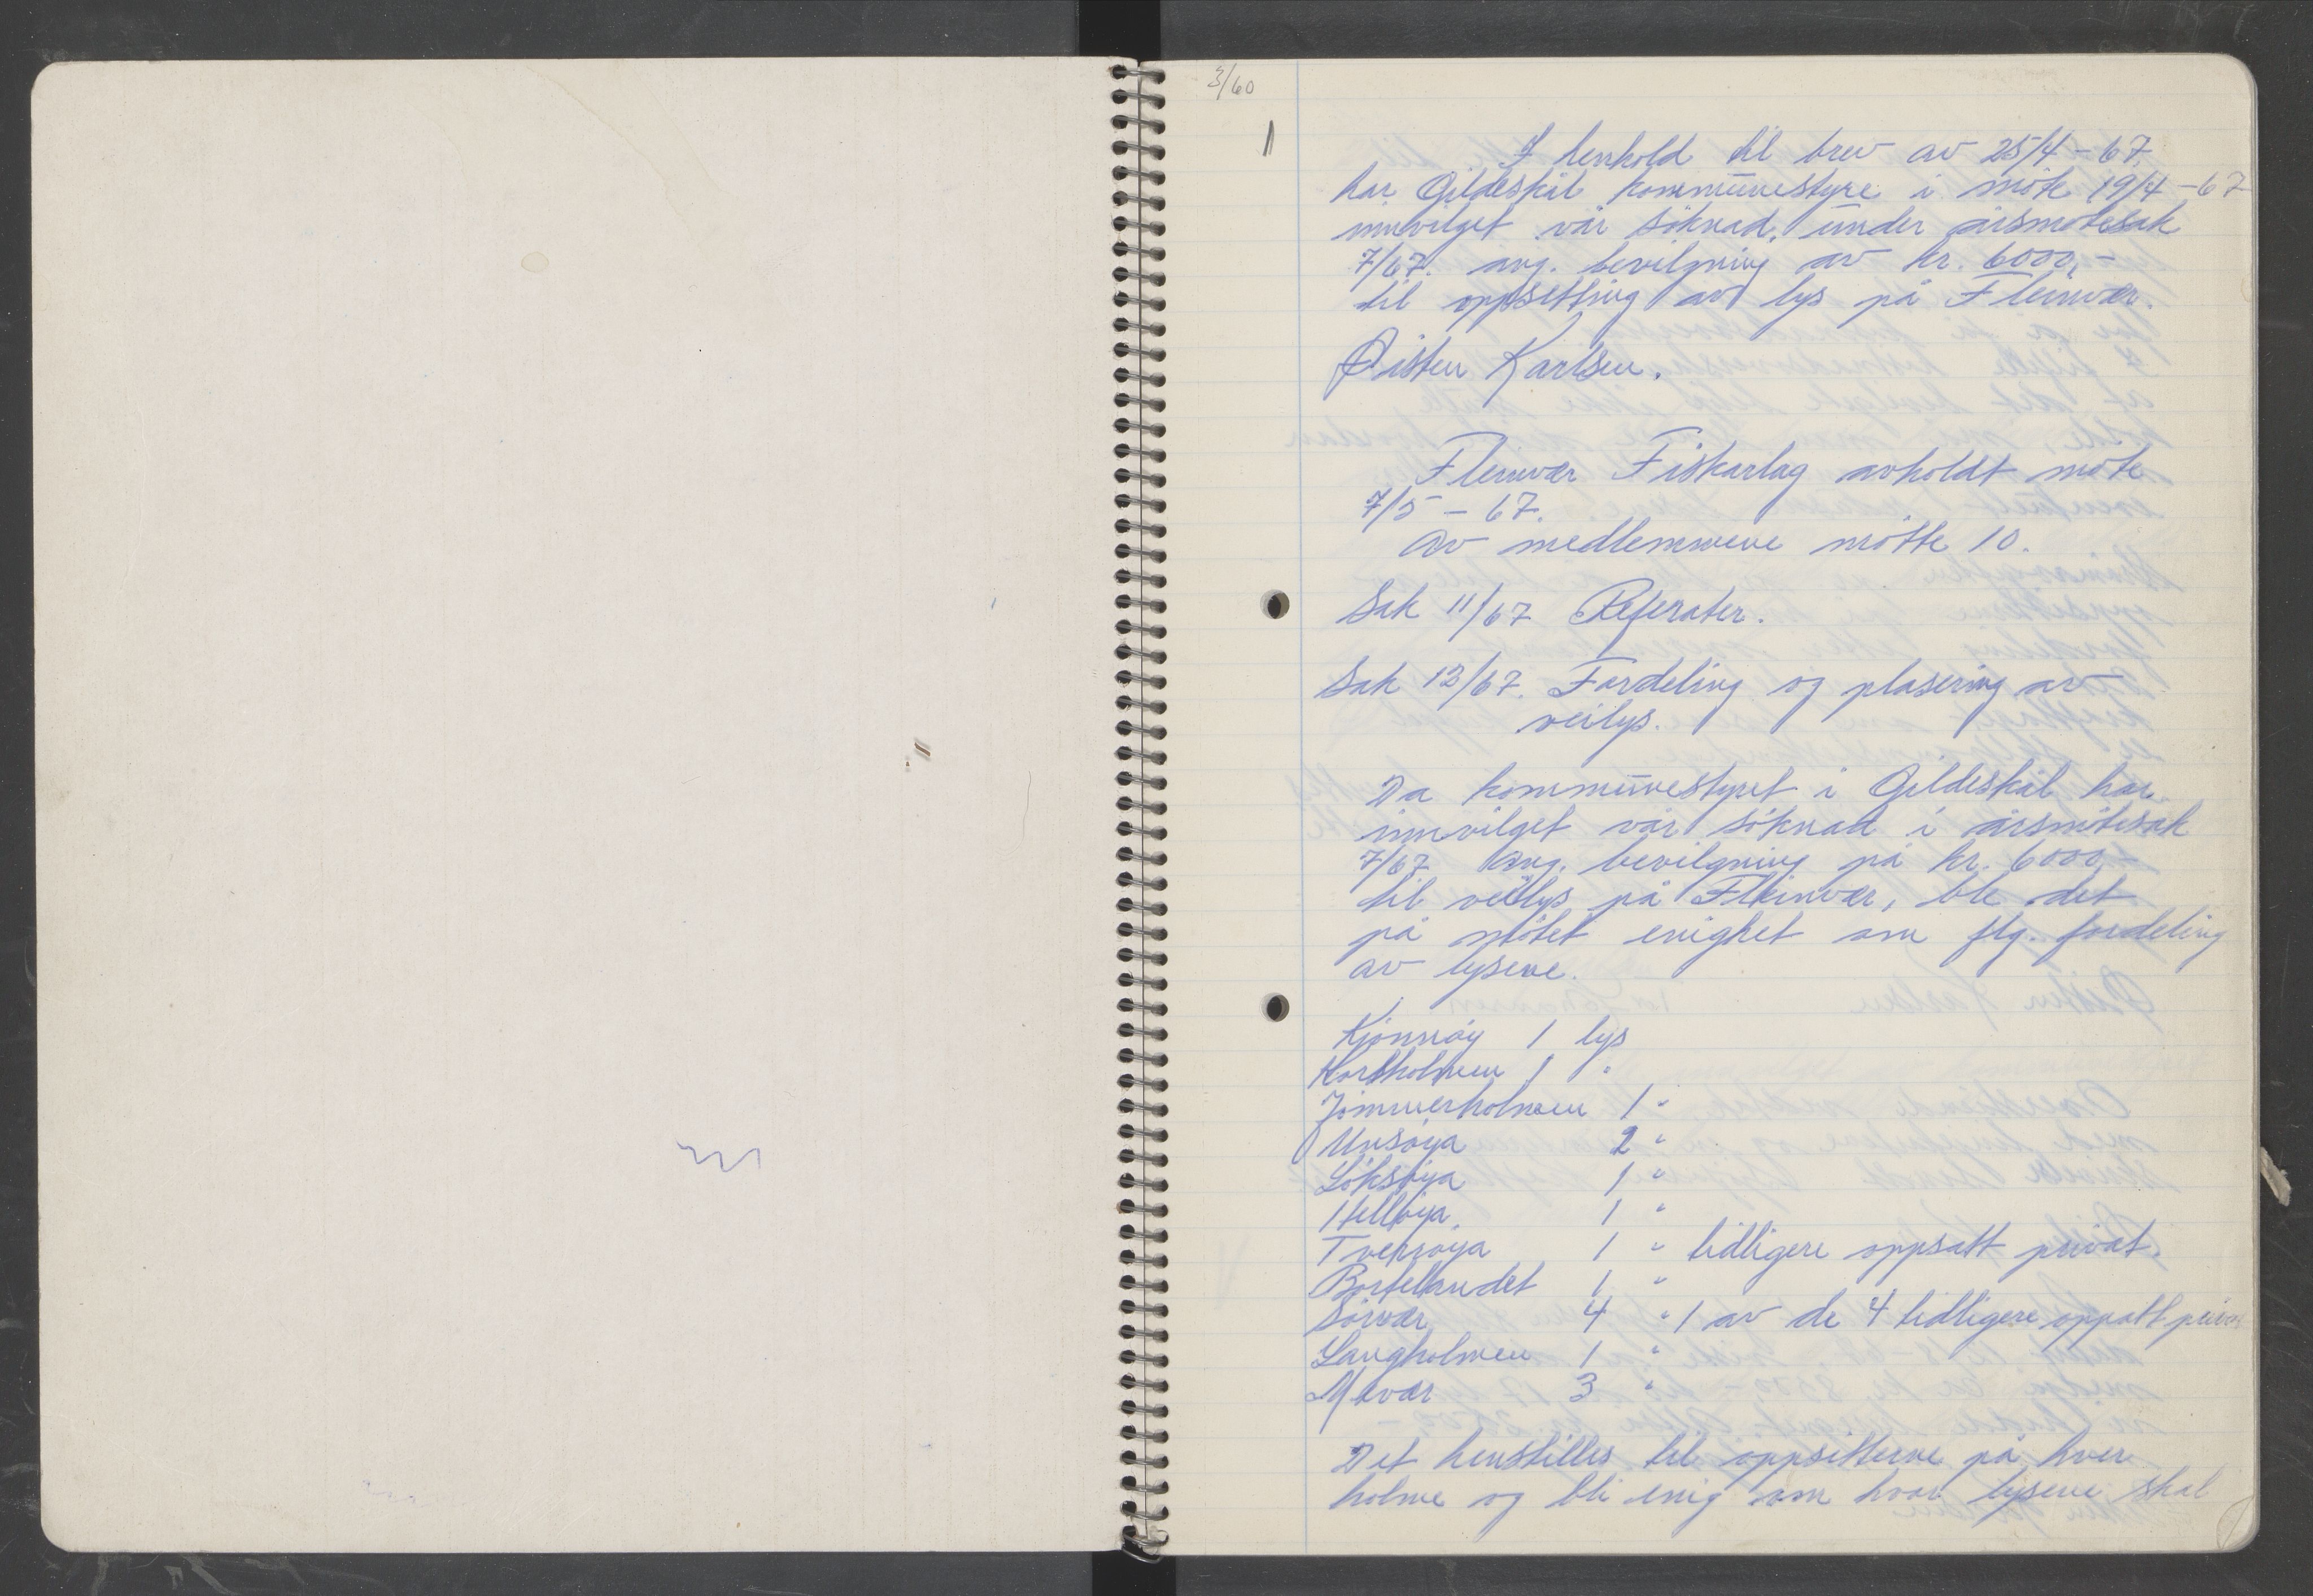 3/60
1
I henhold til brev av 25/4 - 67,
har Gildeskål kommunestyre i møte 19/4 - 67
innvilget vår søknad, under årsmøtesak
7/67. ang. bevilgning av kr. 6000,-
til oppsetting av lys på Fleinvær.
Øisten Karlsen.
Fleinvær Fiskarlag avholdt møte
7/5 - 67.
Av medlemmene møtte 10.
Sak 11/67 Referater.
Sak 12/67. Fordeling og plasering av
veilys.
Da kommunestyret i Gildeskål har
innvilget vår søknad i årsmøtesak
7/67 ang. bevilgning på kr. 6000,-
til veilys på Fleinvær, ble det
på møtet enighet om flg. fordeling
av lysene.
Kjønnøy 1 lys
1 "
1 "
Unsøya 2 "
Løksøya 1 "
Helløya 1 "
Tverrøya 1 " tidligere oppsatt privat.
1 "
Sørvær 4 " 1 av de 4 tidligere oppatt privat
Langholmen 1 "
Måvær 3 "
Det henstilles til oppsitterne på hver
holme og bli enig om hvor lysene skal